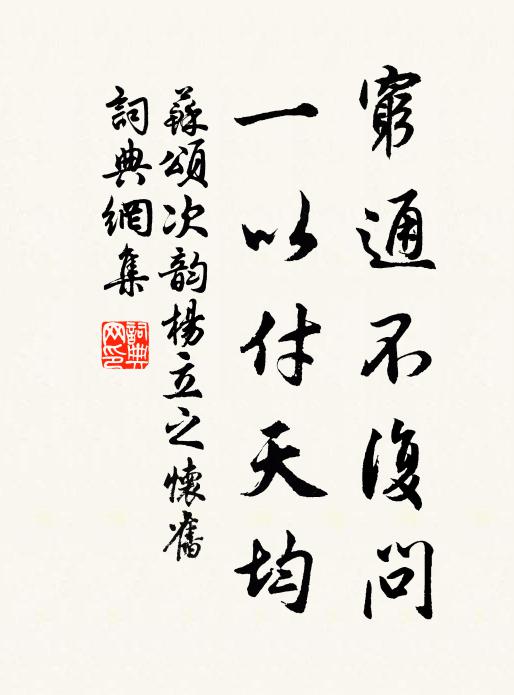 窮通不復問
一以付天均
蘇頌次韵楊立之懷舊
詞典網集
詞典网印